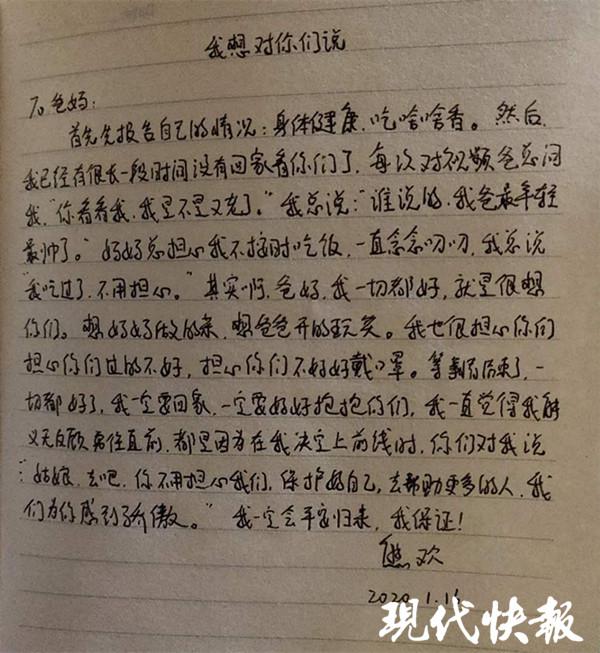 我想对你们说
To 爸妈：
首先先报告自己的情况：身体健康，吃啥啥香。然后，
我已经有很长一段时间没有回家看你们了，每次对视频爸总问
我，“你看看我，我是不是又老了。”我总说：“谁说的，我爸最年轻
最帅了。”妈妈总担心我不按时吃饭，一直念念叨叨，我总说
“我吃过了，不用担心。”其实啊，爸妈，我一切都好，就是很想
你们。想妈妈做的菜，想爸爸开的玩笑。我也很担心你们
担心你们过的不好，担心你们不好好戴口罩。等事情结束了，一
切都好了，我一定要回家，一定要好好抱抱你们，我一直觉得我能
义无反顾勇往直前，都是因为在我决定上前线时，你们对我说
“姑娘，去吧，你不用担心我们，保护好自己，去帮助更多的人，我
们为你感到骄傲。”我一定会平安归来，我保证！
熊欢
2020.1.16
现代快报